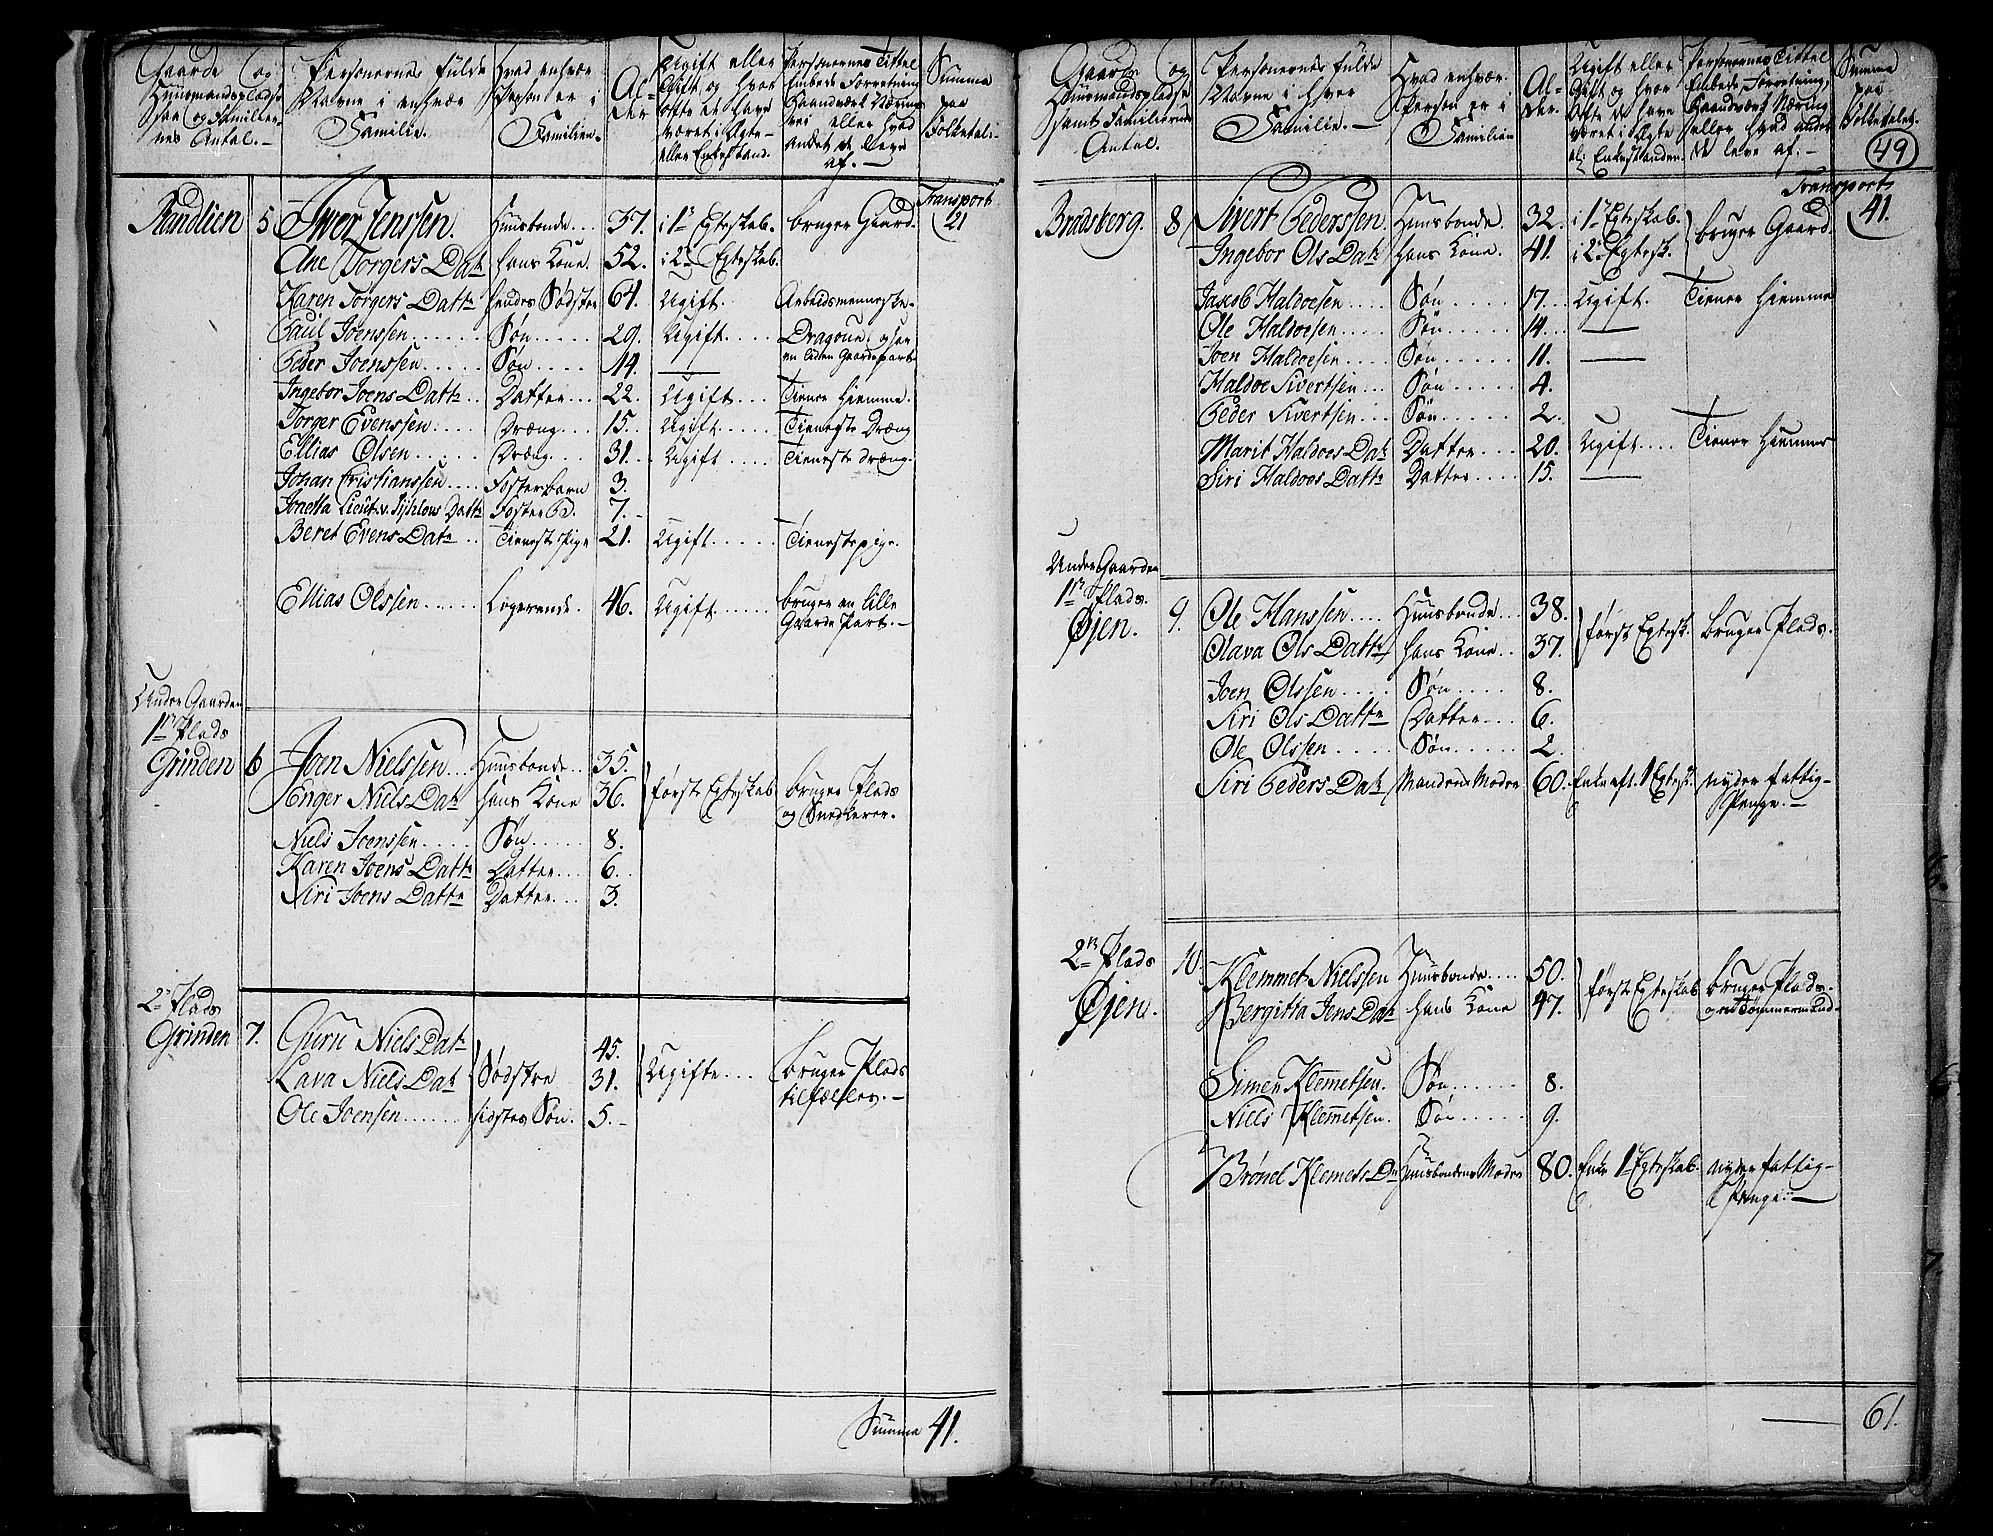 Gaarde og Huusmandspladse saa og Familiernes Antal.
Personernes fulde Navne i enhver Familie.
Hvad enhver Person er i Familien.
Alder
Ugift eller Gift, og hvor ofte de have været i Egte- eller Enkestand.
Personernes Tittel Embede Forretning Haandværk Næringsvei eller hvad andet de leve af.
Summa paa Folketal:
Transport 21
Randlien 5 Iwer Jenssen. Huusbonde... 37. i 1te Egteskab. bruger Gaard.
Ane Torgers Datr hans Kone. 52. i 2t Egteskab.
Karen Torgers Dattr hendes Södster 64. Ugift. Arbeidsmenneske.
Paul Joenssen...... Søn..... 29. Ugift.....
Peder Joenssen..... Søn..... 14. —
Ingebor Joens Dattr.. Datter... 22. Ugift.... Tiener Hiemme.
Torger Evenssen..... Dræng.... 15. Ugift..... Tieneste Dræng
Ellias Olsen...... Dræng.... 31. Ugift..... Tieneste Dræng.
Johan Cristianssen.... Fosterbarn 3.
Jonetta Lieut: v. Dattr Foster B. 7.
Beret Evens Datr.. Tieneste pige 21. Ugift..... Tienestepige.
Ellias Olssen..... Logerende. 46. Ugift...... bruger en lille Gaarde Part.
Under Gaarden
1te Plads
Grinden 6 Joen Nielssen... Huusbonde... 35. første Egteskab bruger Plads og Snedkerer.
Enger Niels Datr hans Kone 36.
Niels Joenssen..... Søn...... 8.
Karen Joens Dattr Datter... 6.
Siri Joens Dattr Datter... 3.
2t Plads
Grinden 7. Guru Niels Datr Södstre 45. Ugifte... bruger Plads tilfælles.
Lava Niels Datr 31.
Ole Joensen...... sidstes Søn. 5.
Summa 41.
Gaarde og Huusmandspladse samt Familiernes Antal.
Personernes fulde Navne i hver Familie.
Hvad enhver Person er i Familien
Alder.
Ugift eller Gift og hvor ofte de have været i Egte el: Enkestanden.
Personernes Tittel Embede Forretning, Haandværk Næring eller hvad andet de leve af:
Summa paa Folketalet.
49
Transport 41.
Bradsberg. 8 Sivert Pederssen. Huusbonde. 32. i 1te Egteskab. bruger Gaard.
Ingebor Ols Datr hans Kone. 41. i 2t Egtesk.
Jacob Haldoesen.... Søn..... 17... Ugift. Tiener Hiemme
Ole Haldoesen..... Søn..... 14... —
Joen Haldoesen.... Søn..... 11. —
Haldoe Sivertsen... Søn..... 4.
Peder Sivertsen... Søn..... 2.
Marit Haldoes Datr Datter.... 20. Ugift.... Tiener Hiemme
Siri Haldoes Dattr Datter.... 15. —
Under Gaarden
1te Plads.
Øjen. 9. Ole Hanssen.... Huusbonde... 38. først Egtesk. bruger Plads.
Olava Ols Dattr hans Kone... 37.
Joen Olssen..... Søn..... 8.
Siri Ols Dattr Datter... 6.
Ole Olssen..... Søn...... 2.
Siri Peders Datr Mandens Moder 60. Enke eft. 1 Egtesk. nyder fattig-Penge.
2n Plads
Øjen. 10. Klemmet Nielssen Huusbonde.... 50. første Egteskab bruger Plads. og er Tömmermand
Bergitta Jens Datr hans Kone 47.
Simen Klemetsen. Søn...... 8.
Niels Klemetsen. Søn...... 9.
Brönel Klemets Dr Huusbondens Moder 80. Enke 1 Egteskab. nyder fattig-Penge.
61.